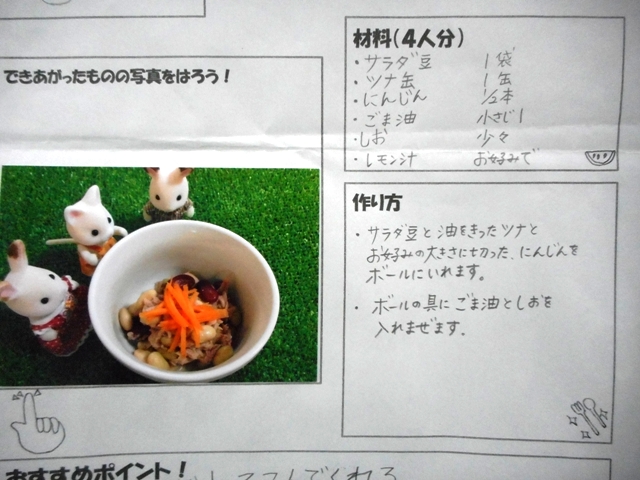 材料(4人分)
・サラダ豆 1袋
・ツナ缶 1缶
・にんじん 1/2本
・ごま油 小さじ1
・しお 少々
・レモン汁 お好みで
できあがったものの写真をはろう！
作り方
・サラダ豆と油をきったツナと
お好みの大きさに切った、にんじんを
ボールにいれます。
・ボールの具にごま油としおを
入れまぜます。
おすすめポイント！